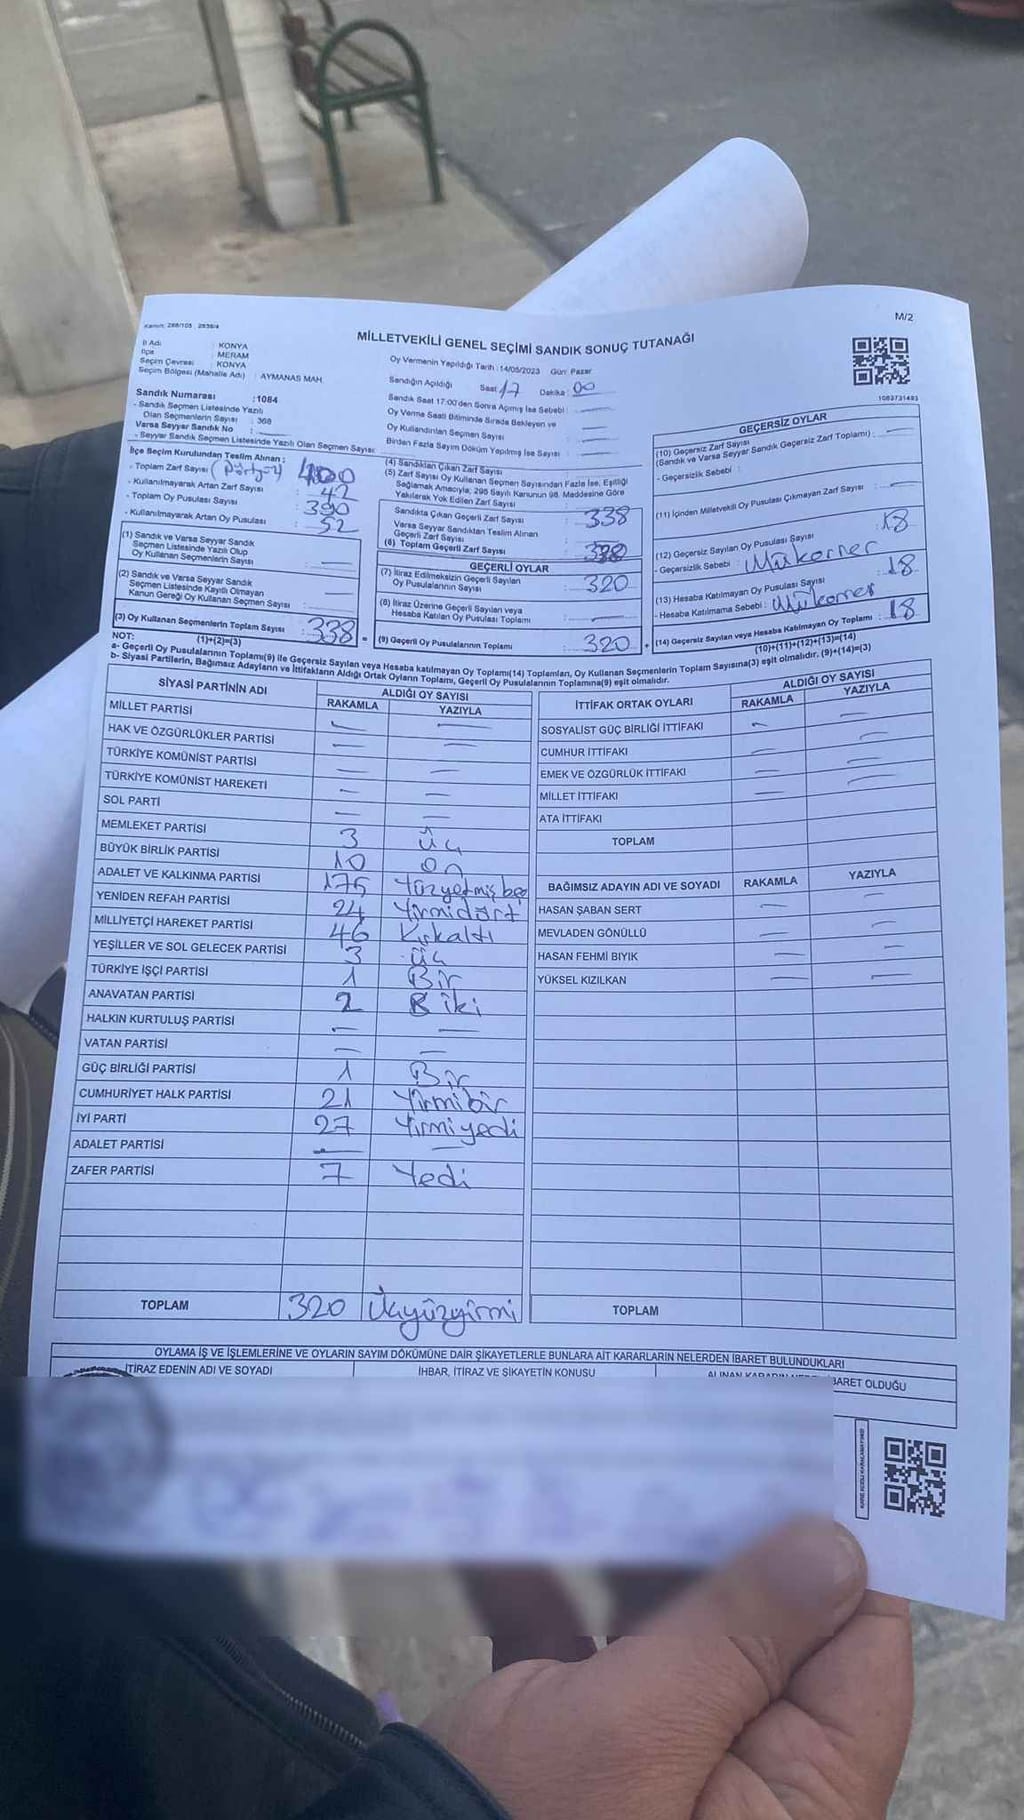 M/2
Kanun: 298/105 , 2839/4
MİLLETVEKİLİ GENEL SEÇİMİ SANDIK SONUÇ TUTANAĞI
İl Adı : KONYA
İlçe : MERAM
Seçim Çevresi : KONYA
Seçim Bölgesi (Mahalle Adı) : AYMANAS MAH.
Sandık Numarası :1084
- Sandık Seçmen Listesinde Yazılı
Olan Seçmenlerin Sayısı : 368
Varsa Seyyar Sandık No :
- Seyyar Sandık Seçmen Listesinde Yazılı Olan Seçmen Sayısı:
Oy Vermenin Yapıldığı Tarih :14/05/2023 Gün: Pazar
Sandığın Açıldığı Saat 17 Dakika: 00
Sandık Saat 17:00'den Sonra Açılmış İse Sebebi :
Oy Verme Saati Bitiminde Sırada Bekleyen ve
Oy Kullandırılan Seçmen Sayısı :
Birden Fazla Sayım Döküm Yapılmış İse Sayısı :
1083731493
İlçe Seçim Kurulundan Teslim Alınan :
- Toplam Zarf Sayısı 400
- Kullanılmayarak Artan Zarf Sayısı : 42
- Toplam Oy Pusulası Sayısı : 390
- Kullanılmayarak Artan Oy Pusulası : 52
(1) Sandık ve Varsa Seyyar Sandık
Seçmen Listesinde Yazılı Olup
Oy Kullanan Seçmenlerin Sayısı : —
(2) Sandık ve Varsa Seyyar Sandık
Seçmen Listesinde Kayıtlı Olmayan
Kanun Gereği Oy Kullanan Seçmen Sayısı : —
(3) Oy Kullanan Seçmenlerin Toplam Sayısı : 338
(1)+(2)=(3)
(4) Sandıktan Çıkan Zarf Sayısı :
(5) Zarf Sayısı Oy Kullanan Seçmen Sayısından Fazla İse, Eşitliği
Sağlamak Amacıyla; 298 Sayılı Kanunun 98. Maddesine Göre
Yakılarak Yok Edilen Zarf Sayısı :
Sandıkta Çıkan Geçerli Zarf Sayısı : 338
Varsa Seyyar Sandıktan Teslim Alınan
Geçerli Zarf Sayısı :
(6) Toplam Geçerli Zarf Sayısı : 338
GEÇERLİ OYLAR
(7) İtiraz Edilmeksizin Geçerli Sayılan
Oy Pusulalarının Sayısı : 320
(8) İtiraz Üzerine Geçerli Sayılan veya
Hesaba Katılan Oy Pusulası Toplamı : —
(9) Geçerli Oy Pusulalarının Toplamı : 320
GEÇERSİZ OYLAR
(10) Geçersiz Zarf Sayısı
(Sandık ve Varsa Seyyar Sandık Geçersiz Zarf Toplamı) : —
- Geçersizlik Sebebi :
(11) İçinden Milletvekili Oy Pusulası Çıkmayan Zarf Sayısı : —
(12) Geçersiz Sayılan Oy Pusulası Sayısı : 18
- Geçersizlik Sebebi : Mükerrer
(13) Hesaba Katılmayan Oy Pusulası Sayısı : 18
- Hesaba Katılmama Sebebi : Mükerrer
(14) Geçersiz Sayılan veya Hesaba Katılmayan Oy Toplamı : 18
(10)+(11)+(12)+(13)=(14)
NOT:
a- Geçerli Oy Pusulalarının Toplamı(9) ile Geçersiz Sayılan veya Hesaba katılmayan Oy Toplamı(14) Toplamları, Oy Kullanan Seçmenlerin Toplam Sayısına(3) eşit olmalıdır. (9)+(14)=(3)
b- Siyasi Partilerin, Bağımsız Adayların ve İttifakların Aldığı Ortak Oyların Toplamı, Geçerli Oy Pusulalarının Toplamına(9) eşit olmalıdır.
SİYASİ PARTİNİN ADI ALDIĞI OY SAYISI
RAKAMLA YAZIYLA
MİLLET PARTİSİ — —
HAK VE ÖZGÜRLÜKLER PARTİSİ — —
TÜRKİYE KOMÜNİST PARTİSİ — —
TÜRKİYE KOMÜNİST HAREKETİ — —
SOL PARTİ — —
MEMLEKET PARTİSİ 3 Üç
BÜYÜK BİRLİK PARTİSİ 10 On
ADALET VE KALKINMA PARTİSİ 175 Yüzyetmişbeş
YENİDEN REFAH PARTİSİ 24 Yirmidört
MİLLİYETÇİ HAREKET PARTİSİ 46 Kırkaltı
YEŞİLLER VE SOL GELECEK PARTİSİ 3 Üç
TÜRKİYE İŞÇİ PARTİSİ 1 Bir
ANAVATAN PARTİSİ 2 iki
HALKIN KURTULUŞ PARTİSİ — —
VATAN PARTİSİ — —
GÜÇ BİRLİĞİ PARTİSİ 1 Bir
CUMHURİYET HALK PARTİSİ 21 Yirmibir
İYİ PARTİ 27 Yirmiyedi
ADALET PARTİSİ — —
ZAFER PARTİSİ 7 Yedi
TOPLAM 320 Üçyüzyirmi
İTTİFAK ORTAK OYLARI ALDIĞI OY SAYISI
RAKAMLA YAZIYLA
SOSYALİST GÜÇ BİRLİĞİ İTTİFAKI — —
CUMHUR İTTİFAKI — —
EMEK VE ÖZGÜRLÜK İTTİFAKI — —
MİLLET İTTİFAKI — —
ATA İTTİFAKI
TOPLAM
BAĞIMSIZ ADAYIN ADI VE SOYADI RAKAMLA YAZIYLA
HASAN ŞABAN SERT — —
MEVLADEN GÖNÜLLÜ — —
HASAN FEHMİ BIYIK — —
YÜKSEL KIZILKAN — —
TOPLAM
OYLAMA İŞ VE İŞLEMLERİNE VE OYLARIN SAYIM DÖKÜMÜNE DAİR ŞİKAYETLERLE BUNLARA AİT KARARLARIN NELERDEN İBARET BULUNDUKLARI
İTİRAZ EDENİN ADI VE SOYADI İHBAR, İTİRAZ VE ŞİKAYETİN KONUSU